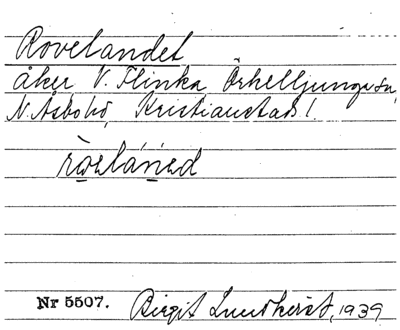 Rovelandet
åker V. Flinka, Örkelljunga sn,
N. Åsbo hd, Kristianstads l.
Nr 5507. Birgit Lundkvist, 1939